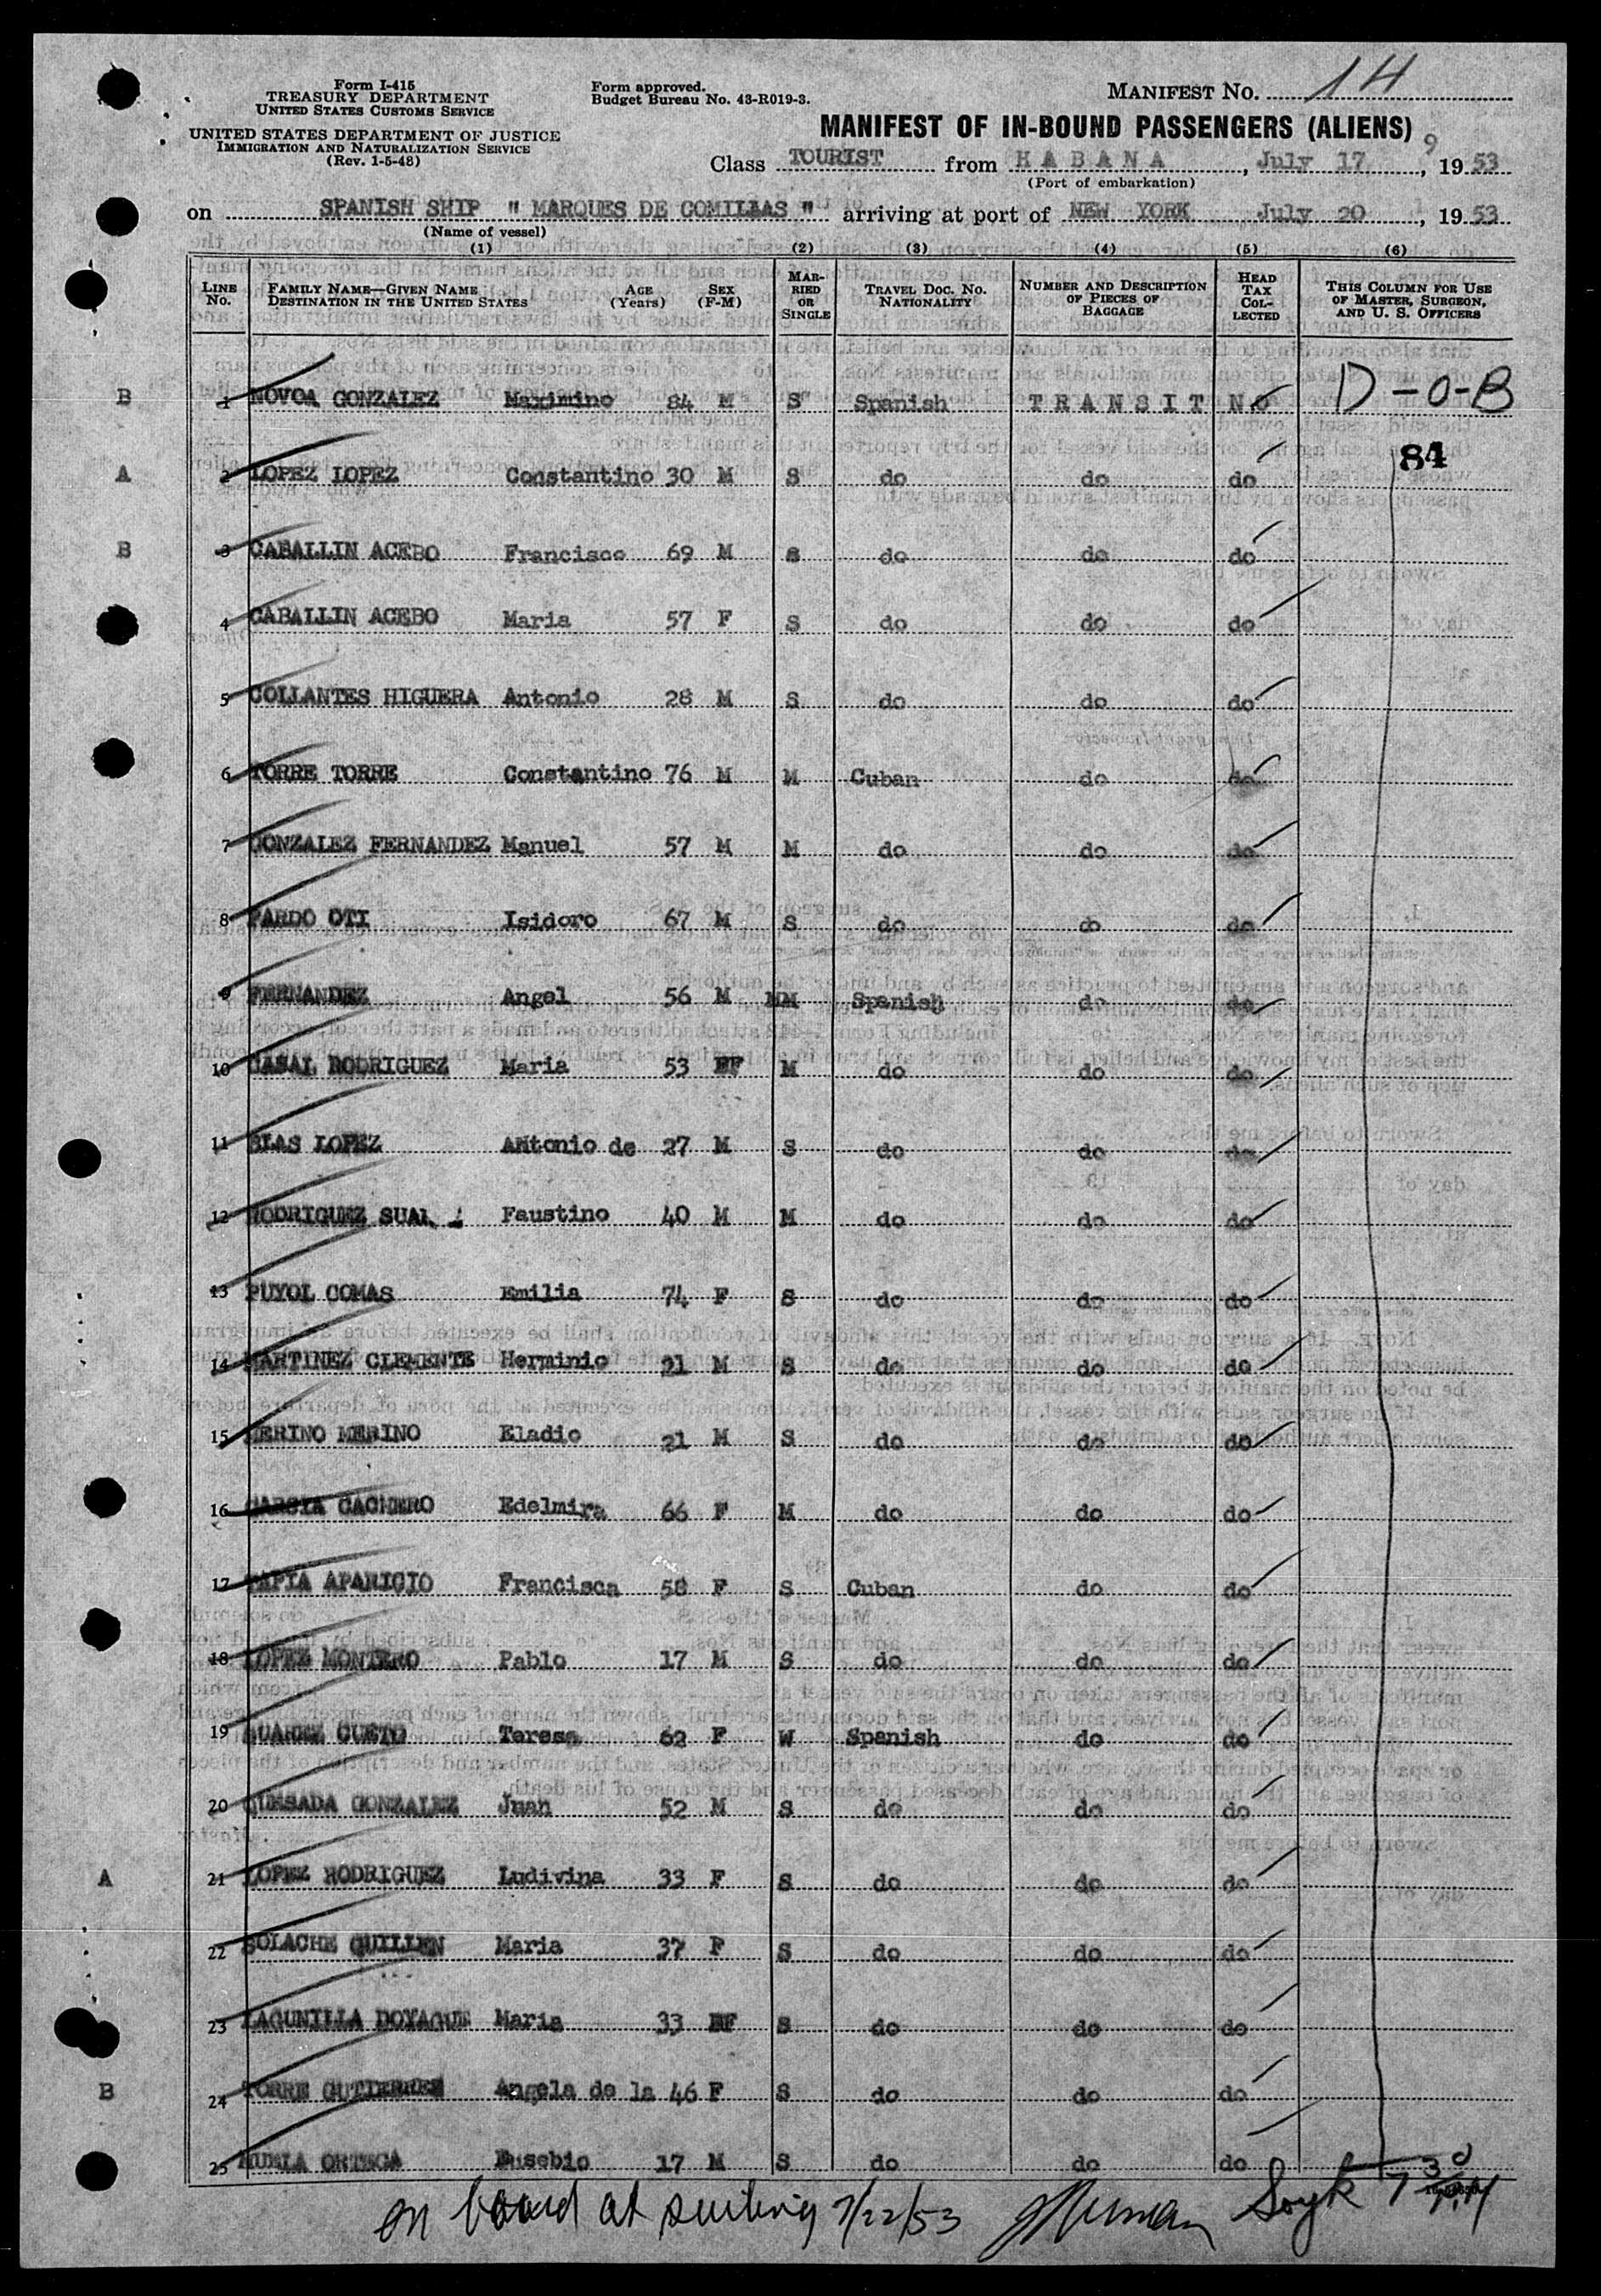 Form I-415
TREASURY DEPARTMENT
UNITED STATES CUSTOMS SERVICE
UNITED STATES DEPARTMENT OF JUSTICE
IMMIGRATION AND NATURALIZATION SERVICE
(Rev. 1-5-48)
Form approved.
Budget Bureau No. 43-R019-3.
MANIFEST NO. 14
MANIFEST OF IN-BOUND PASSENGERS (ALIENS)
9
Class TOURIST from HABANA, July 17, 1953
(Port of embarkation)
on SPANISH SHIP " MARQUES DE COMILLAS " arriving at port of NEW YORK July 20, 1953
(Name of vessel)
(1) (2) (3) (4) (5) (6)
LINE NO. FAMILY NAME—GIVEN NAME DESTINATION IN THE UNITED STATES AGE (Years) SEX (F-M) MARRIED OR SINGLE TRAVEL DOC. NO. NATIONALITY NUMBER AND DESCRIPTION OF PIECES OF BAGGAGE HEAD TAX COLLECTED THIS COLUMN FOR USE OF MASTER, SURGEON, AND U. S. OFFICERS
B 1 NOVOA GONZALEZ Maximino 84 M S Spanish TRANSIT No D-O-B
84
A 2 LOPEZ LOPEZ Constantino 30 M S do do do
B 3 CABALLIN ACEBO Francisco 69 M S do do do
4 CABALLIN ACEBO Maria 57 F S do do do
5 COLLANTES HIGUERA Antonio 28 M S do do do
6 TORRE TORRE Constantino 76 M M Cuban do do
7 GONZALEZ FERNANDEZ Manuel 57 M M do do do
8 PARDO OTI Isidoro 67 M S do do do
9 FERNANDEZ Angel 56 M M Spanish do do
10 CASAL RODRIGUEZ Maria 53 F M do do do
11 BLAS LOPEZ Antonio de 27 M S do do do
12 RODRIGUEZ Faustino 40 M M do do do
13 PUYOL COMAS Emilia 74 F S do do do
14 MARTINEZ CLEMENTE Herminio 21 M S do do do
15 MERINO MERINO Eladio 21 M S do do do
16 GARCIA CACHERO Edelmira 66 F M do do do
17 TAPIA APARICIO Francisca 58 F S Cuban do do
18 LOPEZ MONTERO Pablo 17 M S do do do
19 SUAREZ CUETO Teresa 62 F W Spanish do do
20 QUESADA GONZALEZ Juan 52 M S do do do
A 21 LOPEZ RODRIGUEZ Ludivina 33 F S do do do
22 SOLACHE QUILLEN Maria 37 F S do do do
23 LAGUNILLA DOYAGUE Maria 33 F S do do do
B 24 TORRE GUTIERREZ Angela de la 46 F S do do do
25 ORTEGA Eusebio 17 M S do do do
on board at sailing 7/22/53